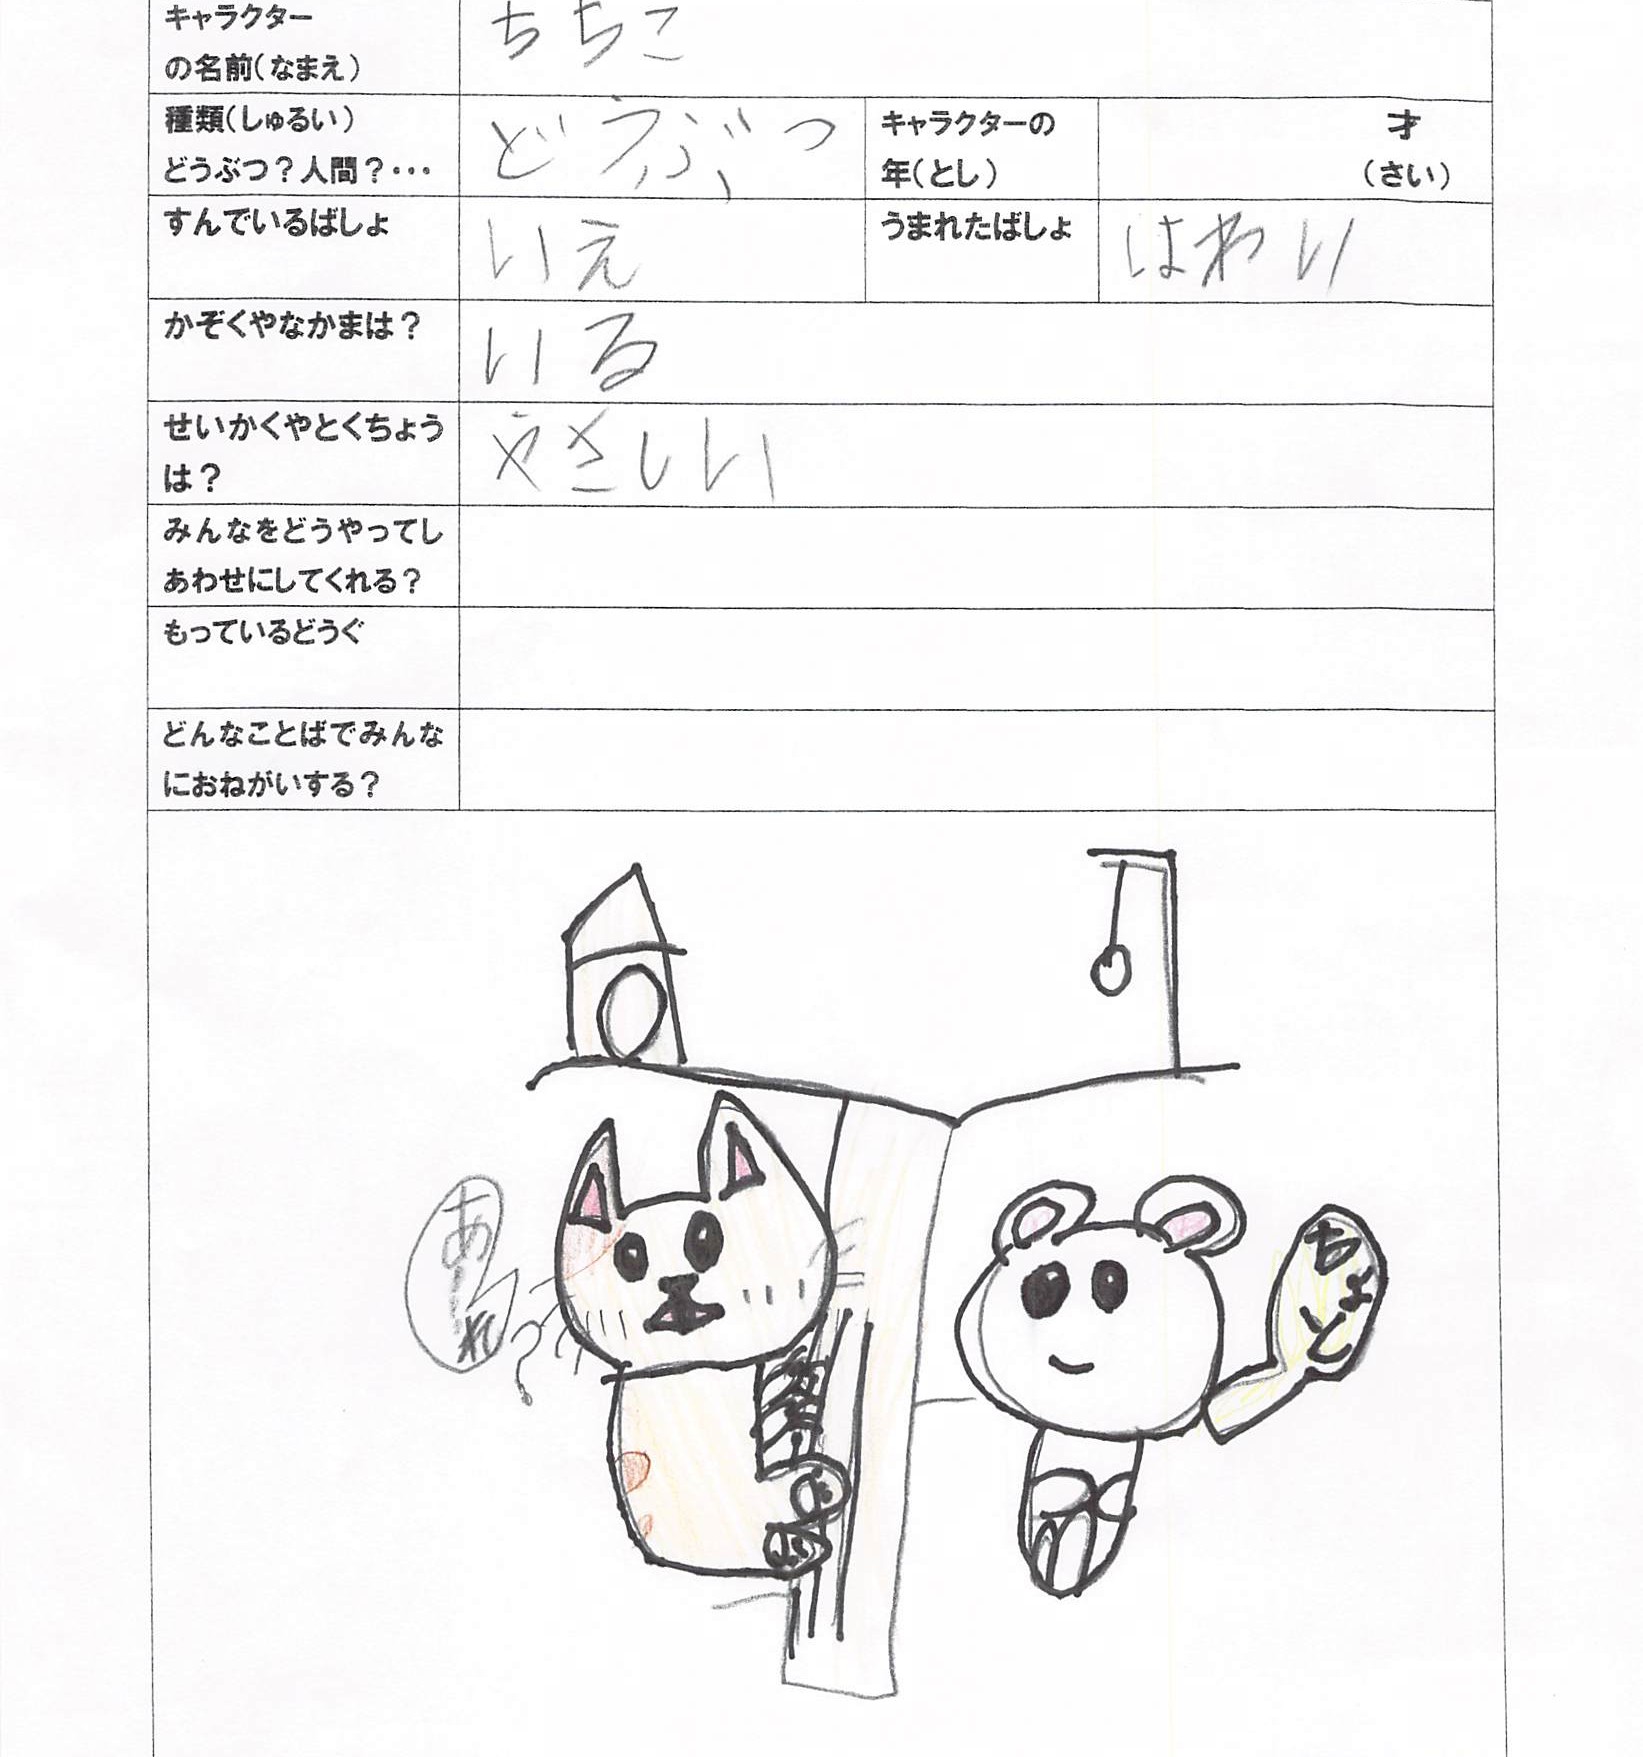 キャラクター
の名前(なまえ)
ちちこ
種類(しゅるい)
どうぶつ?人間?・・・
どうぶつ
キャラクターの
年(とし)
才
(さい)
すんでいるばしょ
いえ
うまれたばしょ
はわい
かぞくやなかまは?
いる
せいかくやとくちょう
は?
やさしい
みんなをどうやってし
あわせにしてくれる?
もっているどうぐ
どんなことばでみんな
におねがいする?
あーれ
?
ちょと